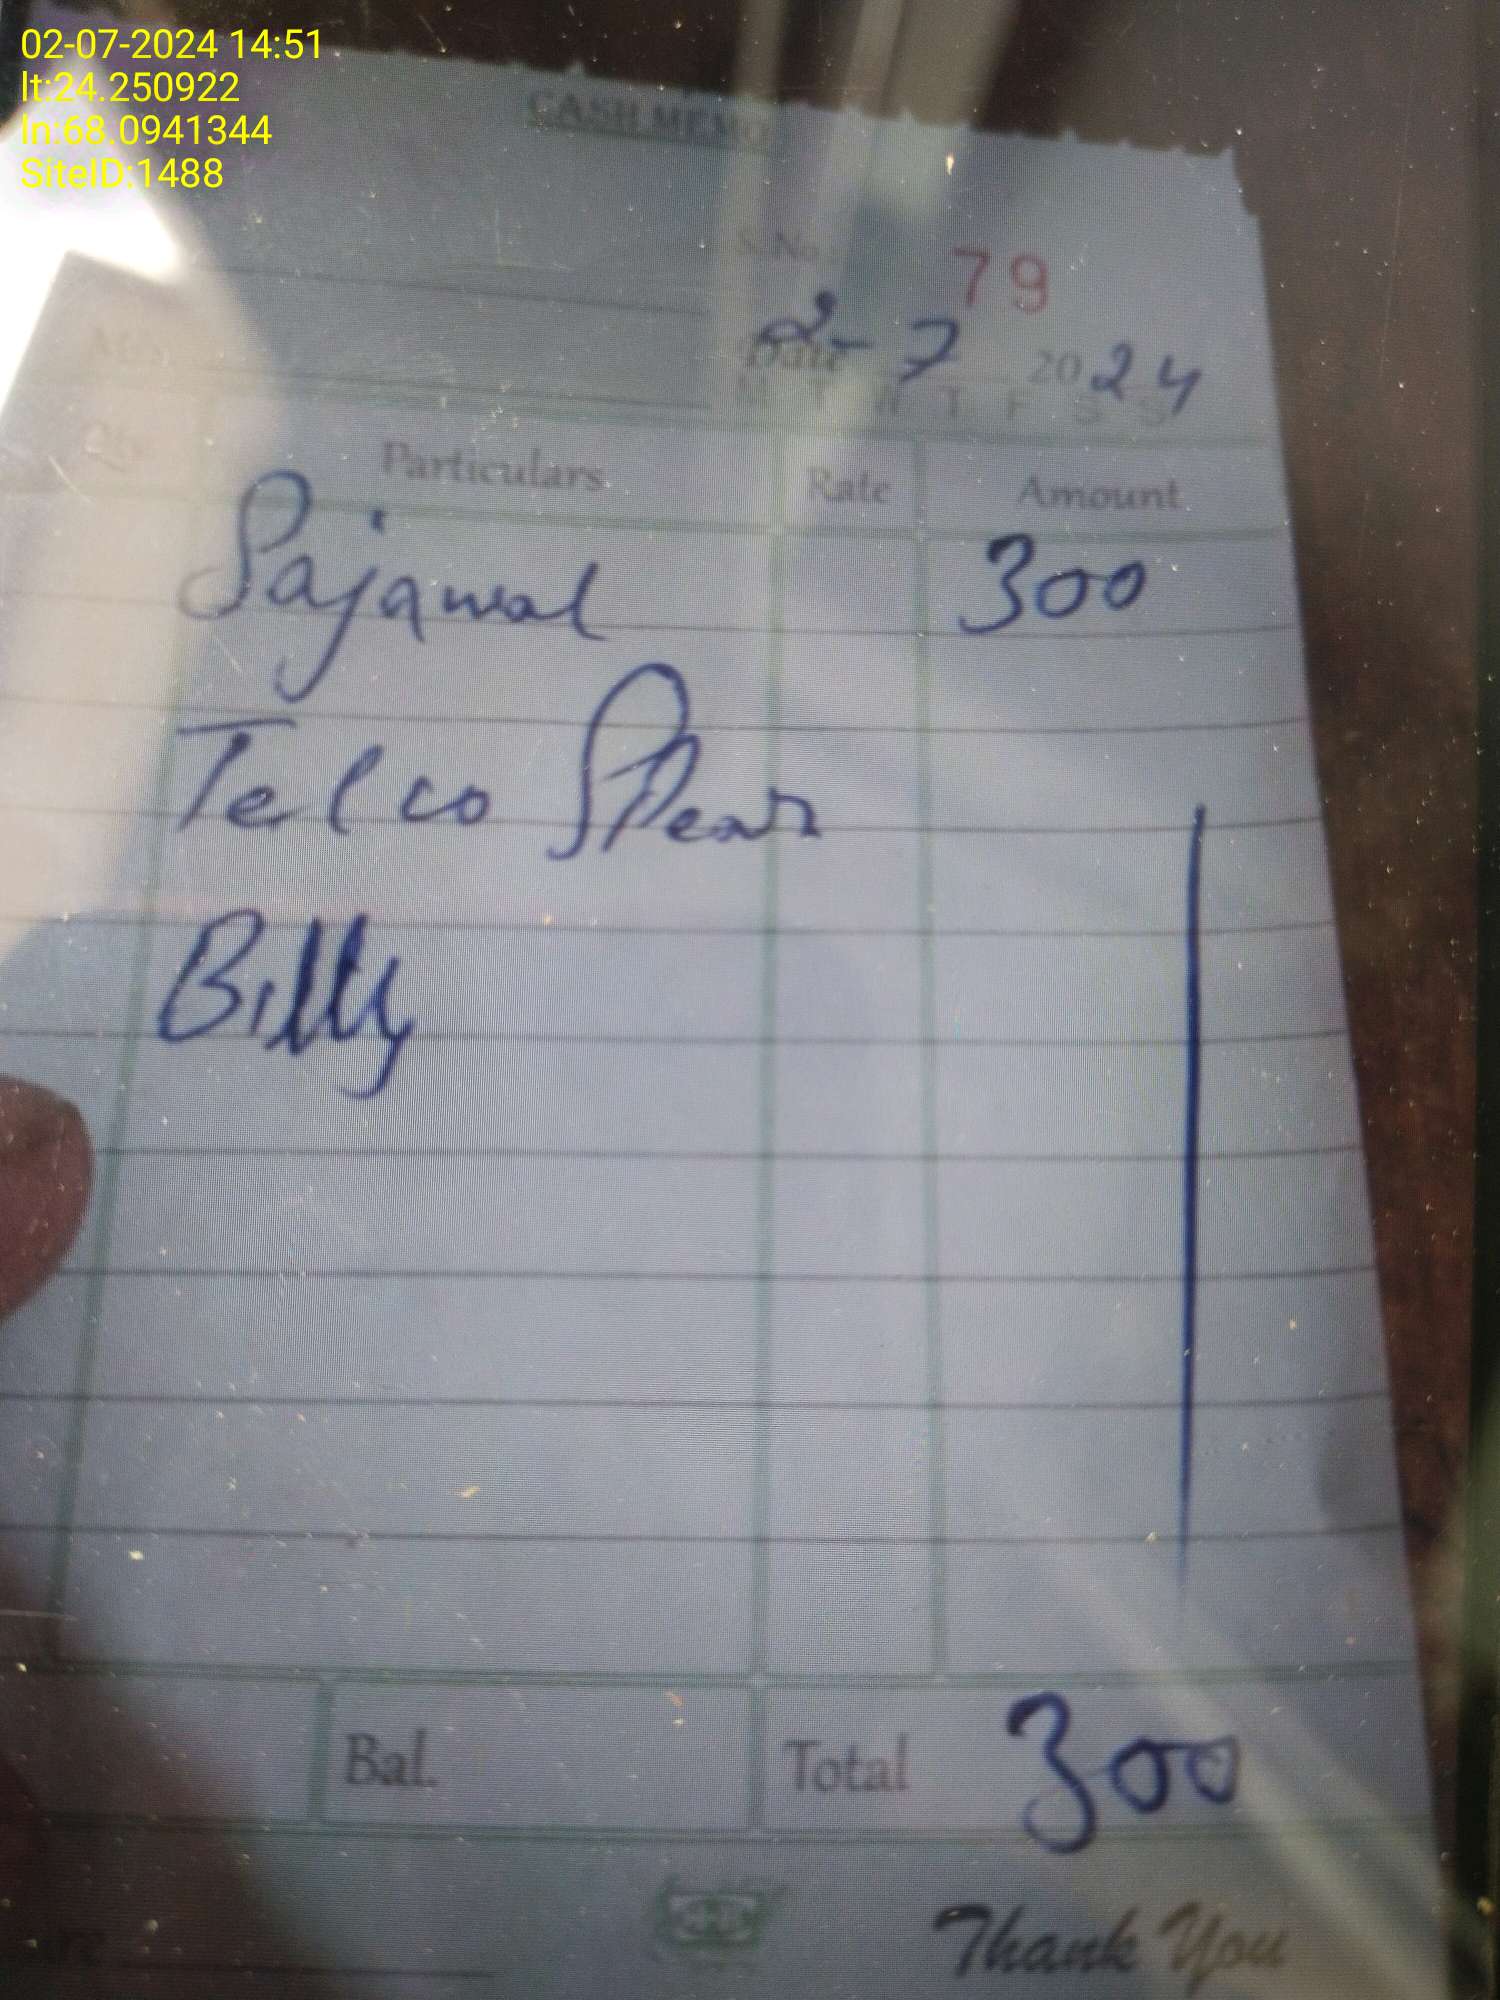 02-07-2024 14:51
lt:24.250922
ln:68.0941344
SiteID:1488
CASH MEMO
S.No. 79
Date 2-7 2024
M T W T F S S
Qty. Particulars Rate Amount
Sajawal 300
Telco Spear
Billy
Bal. Total 300
Thank You